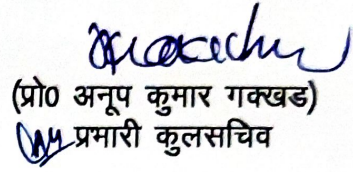 (प्रो0 अनूप कुमार गक्खड)
प्रभारी कुलसचिव